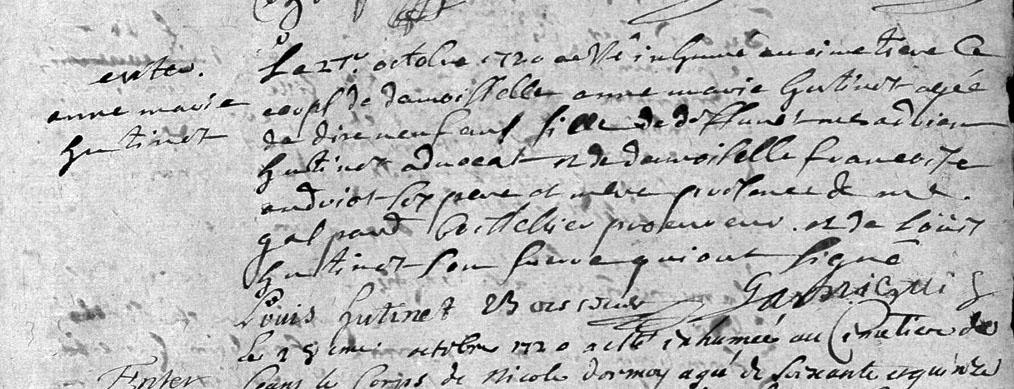 enter.
anne marie
hutinet
Le 27e octobre 1720 a esté inhumé au cimetiere Ce
corps de damoiselle anne marie hutinet agée
de dixneuf ans fille de deffunct me adrien
hutinet advocat et de damoiselle francoise
andriot ses pere et mere presence de me
gaspard procureur et de Loüis
hutinet son frere qui ont signé
Louis hutinet
le 28eme octobre 1720 a esté inhumée au Cimetiere de
Enter
Ceans le Corps de Nicole dormoy agé de soixante et quinze